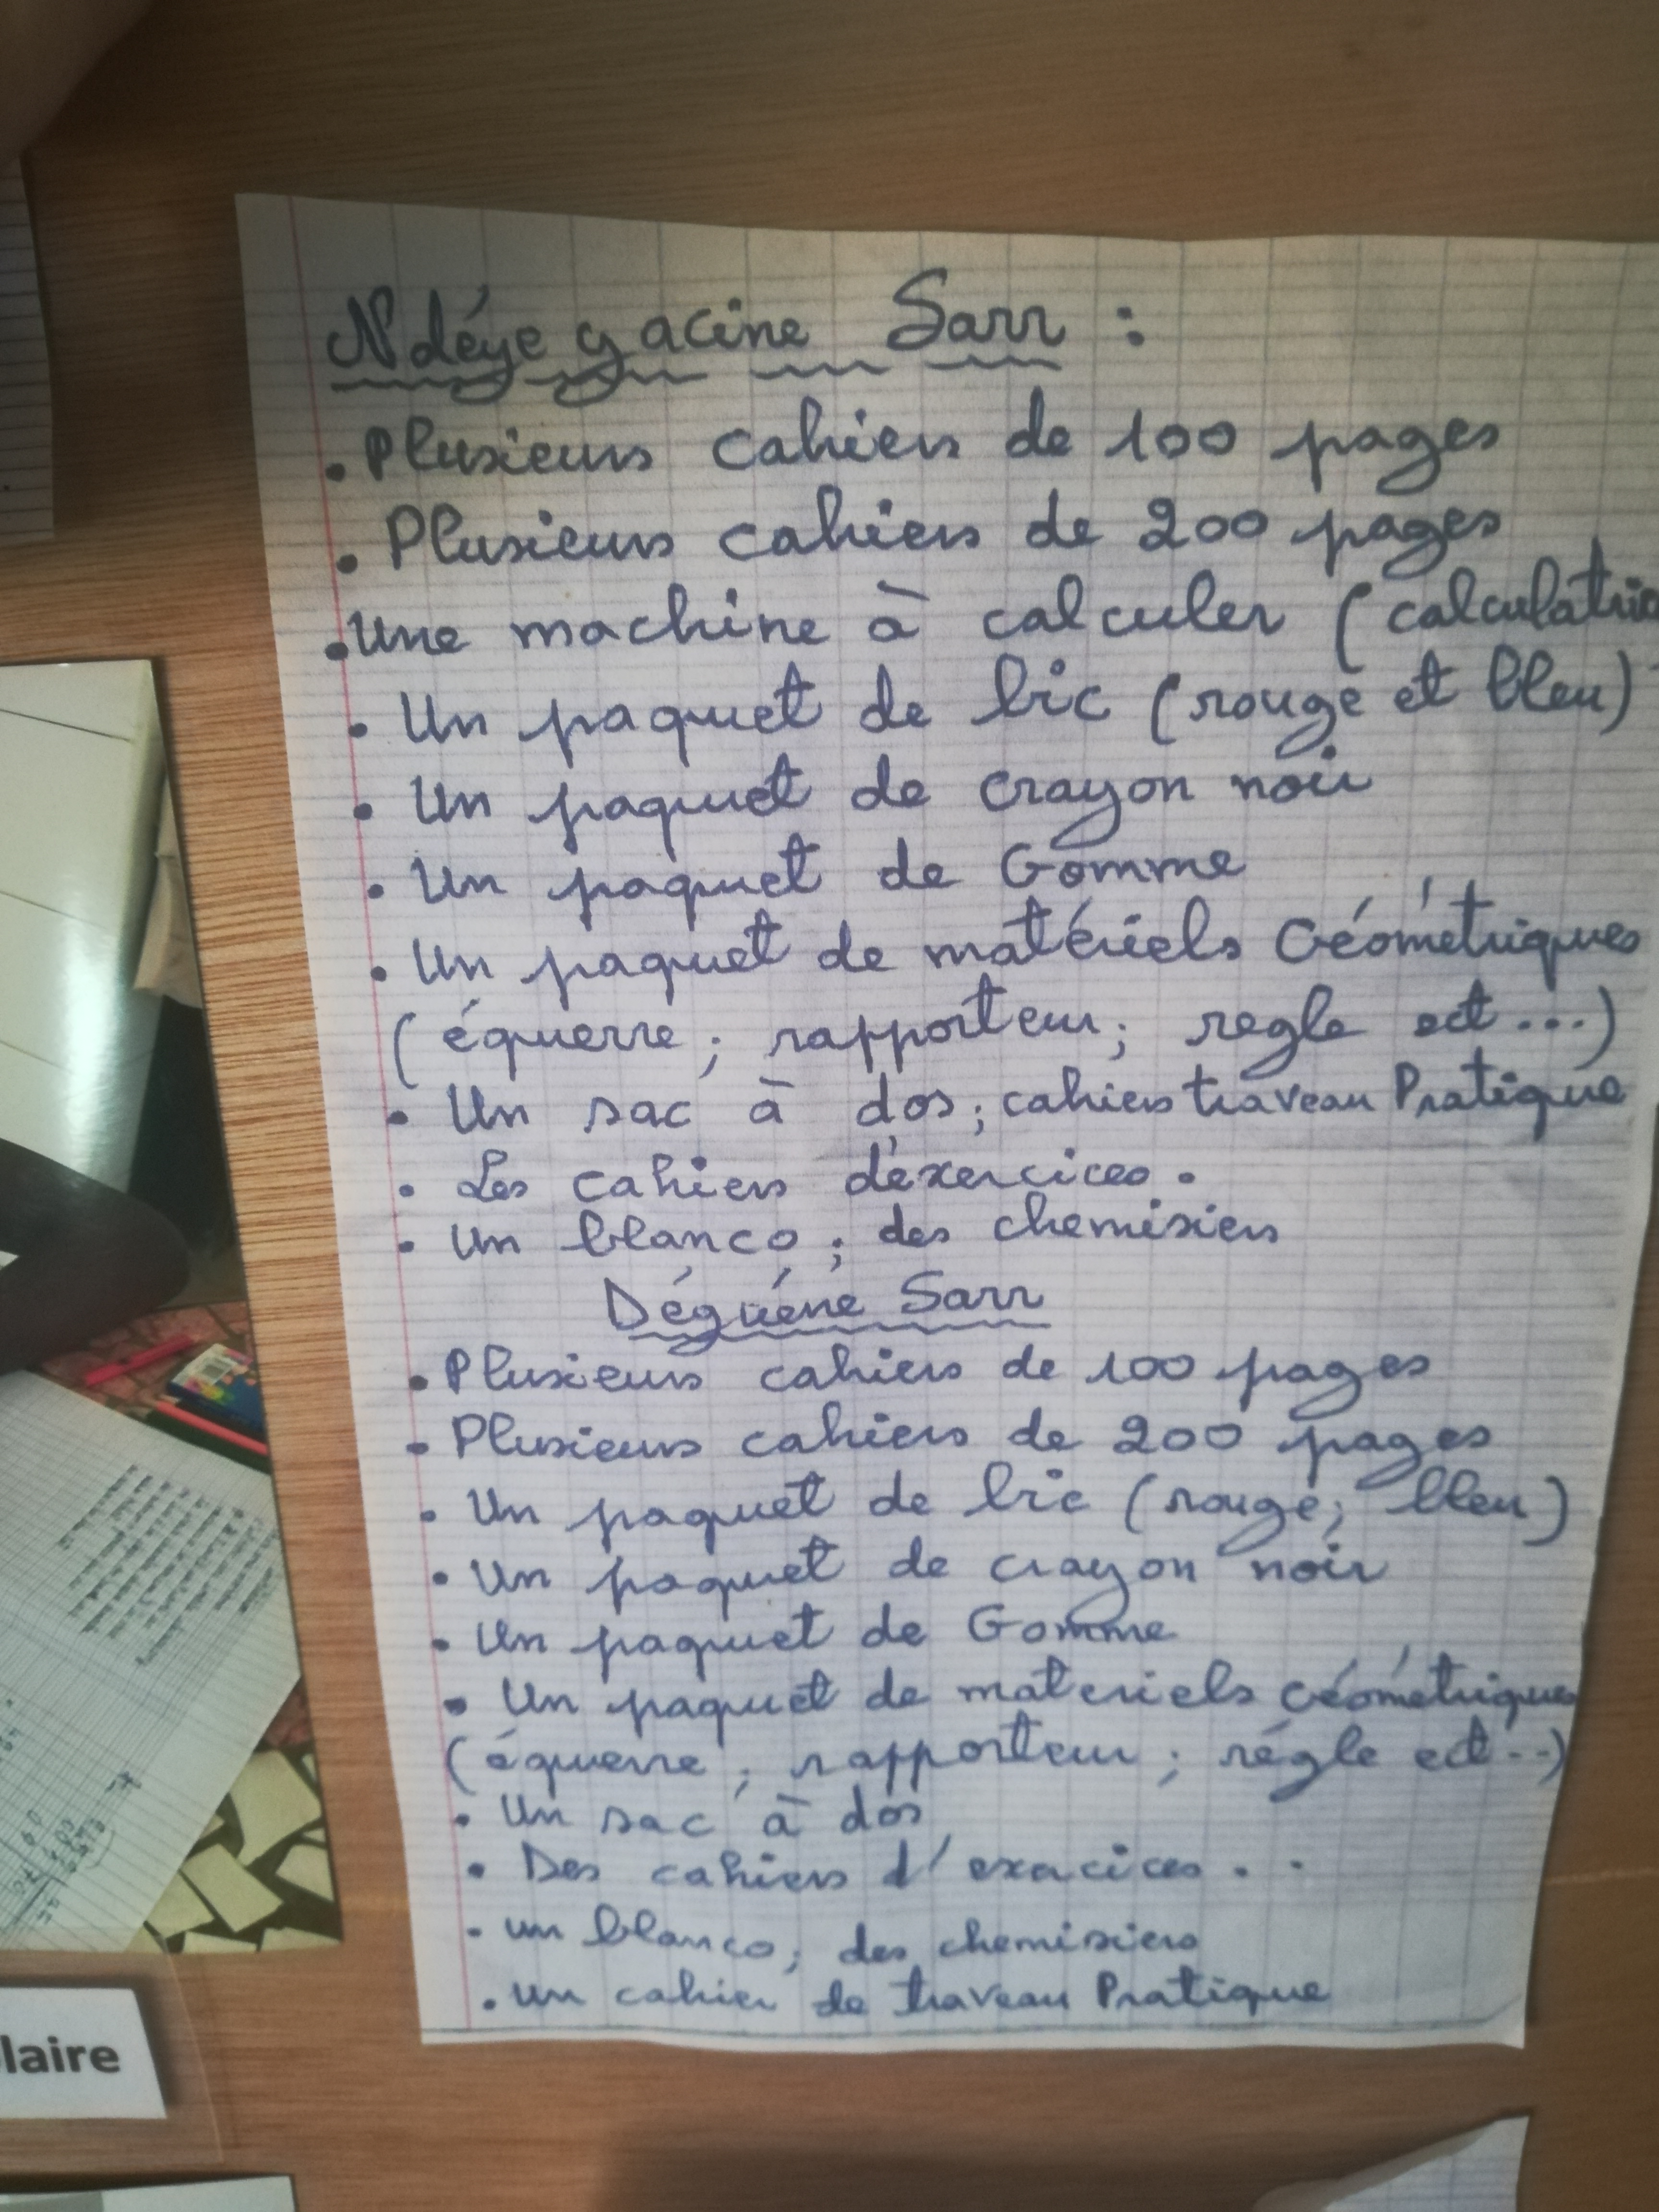 Ndéye yacine Sarr :
. Plusieurs cahiers de 100 pages
. Plusieurs cahiers de 200 pages
. Une machine à calculer (calculatric
. Un paquet de bic (rouge et bleu)
. Un paquet de crayon noir
. Un paquet de Gomme
. Un paquet de matériels Géométriques
(équerre ; rapporteur ; regle ect...)
. Un sac à dos ; cahiers traveau Pratique
. Les cahiers d'exercices.
. Un blanco ; des chemisiers
Déguéne Sarr
. Plusieurs cahiers de 100 pages
. Plusieurs cahiers de 200 pages
. Un paquet de bic (rouge ; bleu)
. Un paquet de crayon noir
. Un paquet de Gomme
. Un paquet de materiels Géométrique
(équerre ; rapporteur ; régle ect...)
. Un sac à dos
. Des cahiers d'exercices . .
. un blanco ; des chemisiers
. un cahier de traveau Pratique
laire